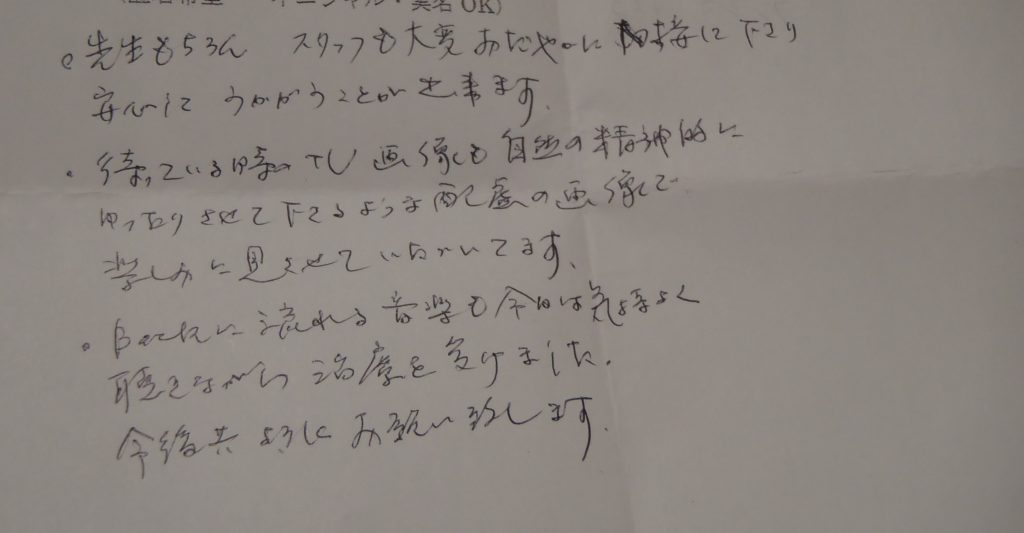 (匿名希望・イニシャル・実名OK)
・先生もちろん スタッフも大変おだやかに接に下さり
安心して うかがうことが出来ます。
・待っている時のTV画像も自然の精神的に
ゆったりさせて下さるような配慮の画像で
楽しみに見させていただいてます。
・Backに流れる音楽も今日は気持よく
聴きながら治療を受けました。
今後共よろしくお願い致します。